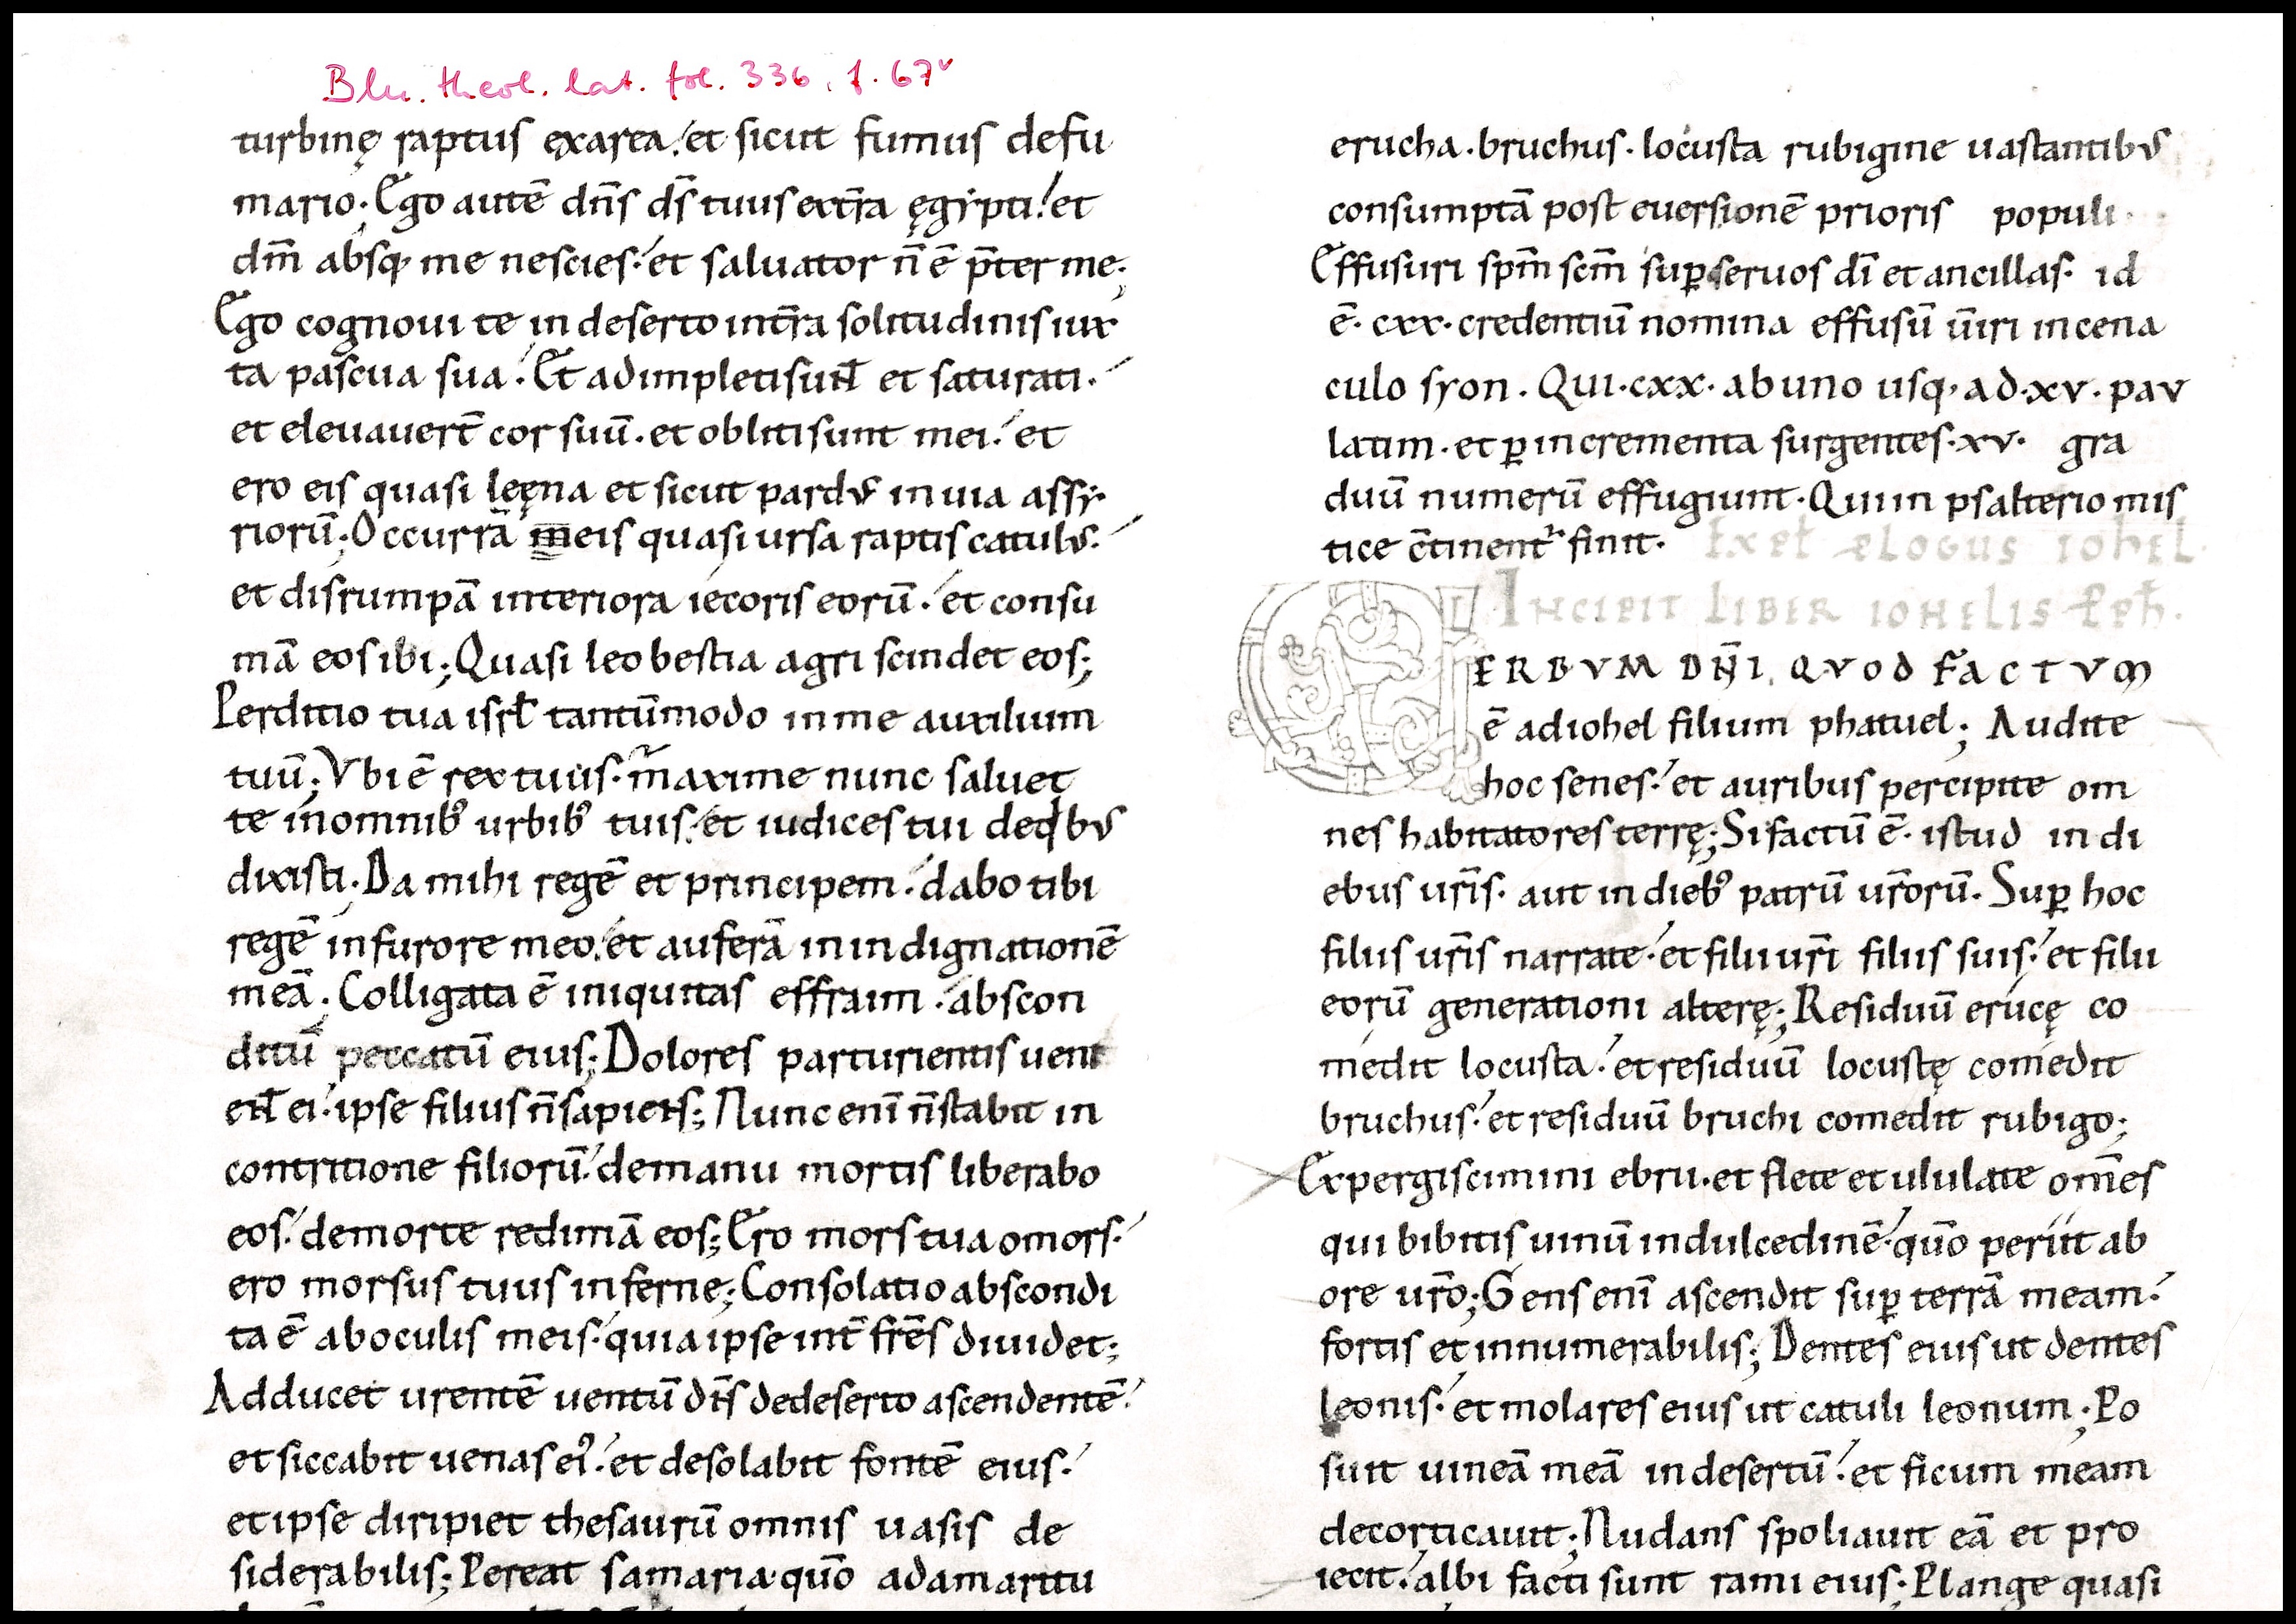 Bln. theol. lat. fol. 336, f. 67v
turbinę raptus exarea. et sicut fumus defu
mario; Ego autē dn̄s ds̄ tuus extr̄a ęgẏpti. et
dm̄ absq; me nescies. et saluator n̄ ē p̄ter me;
Ego cognoui te in deserto intr̄a solitudinis iux
ta pascua sua. Et adimpleti sunt̄ et saturati.
et eleuauert̄ cor suū. et obliti sunt mei. et
ero eis quasi leęna et sicut pardus in uia assẏ
riorū; Occurrā meis quasi ursa raptis catulus.
et disrumpā interiora iecoris eorū. et consu
mā eos ibi; Quasi leo bestia agri scindet eos;
Perditio tua isrł tantūmodo in me auxilium
tuū; Vbi ē rex tuus. maxime nunc saluet
te in omnib' urbib' tuis. et iudices tui de qbus
dixisti; Da mihi regē et principem. dabo tibi
regē in furore meo. et auferā in indignationē
meā; Colligata ē iniquitas effraim. abscon
ditū peccatū eius; Dolores parturientis uent
ent̄ ei. ipse filius n̄ sapiens; Nunc enī n̄ stabit in
contritione filiorū. de manu mortis liberabo
eos. de morte redimā eos; Ero mors tua o mors.
ero morsus tuus inferne; Consolatio abscondi
ta ē ab oculis meis. quia ipse int̄ frēs diuidet;
Adducet urentē uentū dn̄s de deserto ascendentē.
et siccabit uenas ei'. et desolabit fontē eius.
et ipse diripiet thesaurū omnis uasis de
siderabilis; Pereat samaria. quō ad amaritu
erucha. bruchus. locusta rubigine uastantibus
consumptā post euersionē prioris populi.
Effusuri spm̄ scm̄ sup̱ seruos dī et ancillas. id
ē. cxx. credentiū nomina effusū ūiri in cena
culo syon. Qui. cxx. ab uno usq; ad. xv. pau
latim. et p̱ incrementa surgentes. xv. gra
duū numerū effugiunt. Qui in psalterio mis
tice c̄tinent' finit. Expɫ plogus iohel.
Incipit liber iohelis pph̄.
VERBVM DN̄I, QVOD FACTVM
ē ad iohel filium phatuel; Audite
hoc senes. et auribus percipite om
nes habitatores terrę; Si factū ē. istud in di
ebus ur̄is. aut in dieb' patrū ur̄orū. Sup̱ hoc
filiis ur̄is narrate. et filii ur̄i filiis suis. et filii
eorū generationi alterę; Residuū erucę co
medit locusta. et residuū locustę comedit
bruchus. et residuū bruchi comedit rubigo;
Expergiscimini ebrii. et flete et ululate om̄es
qui bibitis uinū in dulcedinē. quō periit ab
ore ur̄o; Gens enī ascendit sup̱ terrā meam.
fortis et innumerabilis; Dentes eius ut dentes
leonis. et molares eius ut catuli leonum; Po
suit uineā meā in desertū. et ficum meam
decorticauit; Nudans spoliauit eā et pro
iecit. albi facti sunt rami eius; Plange quasi